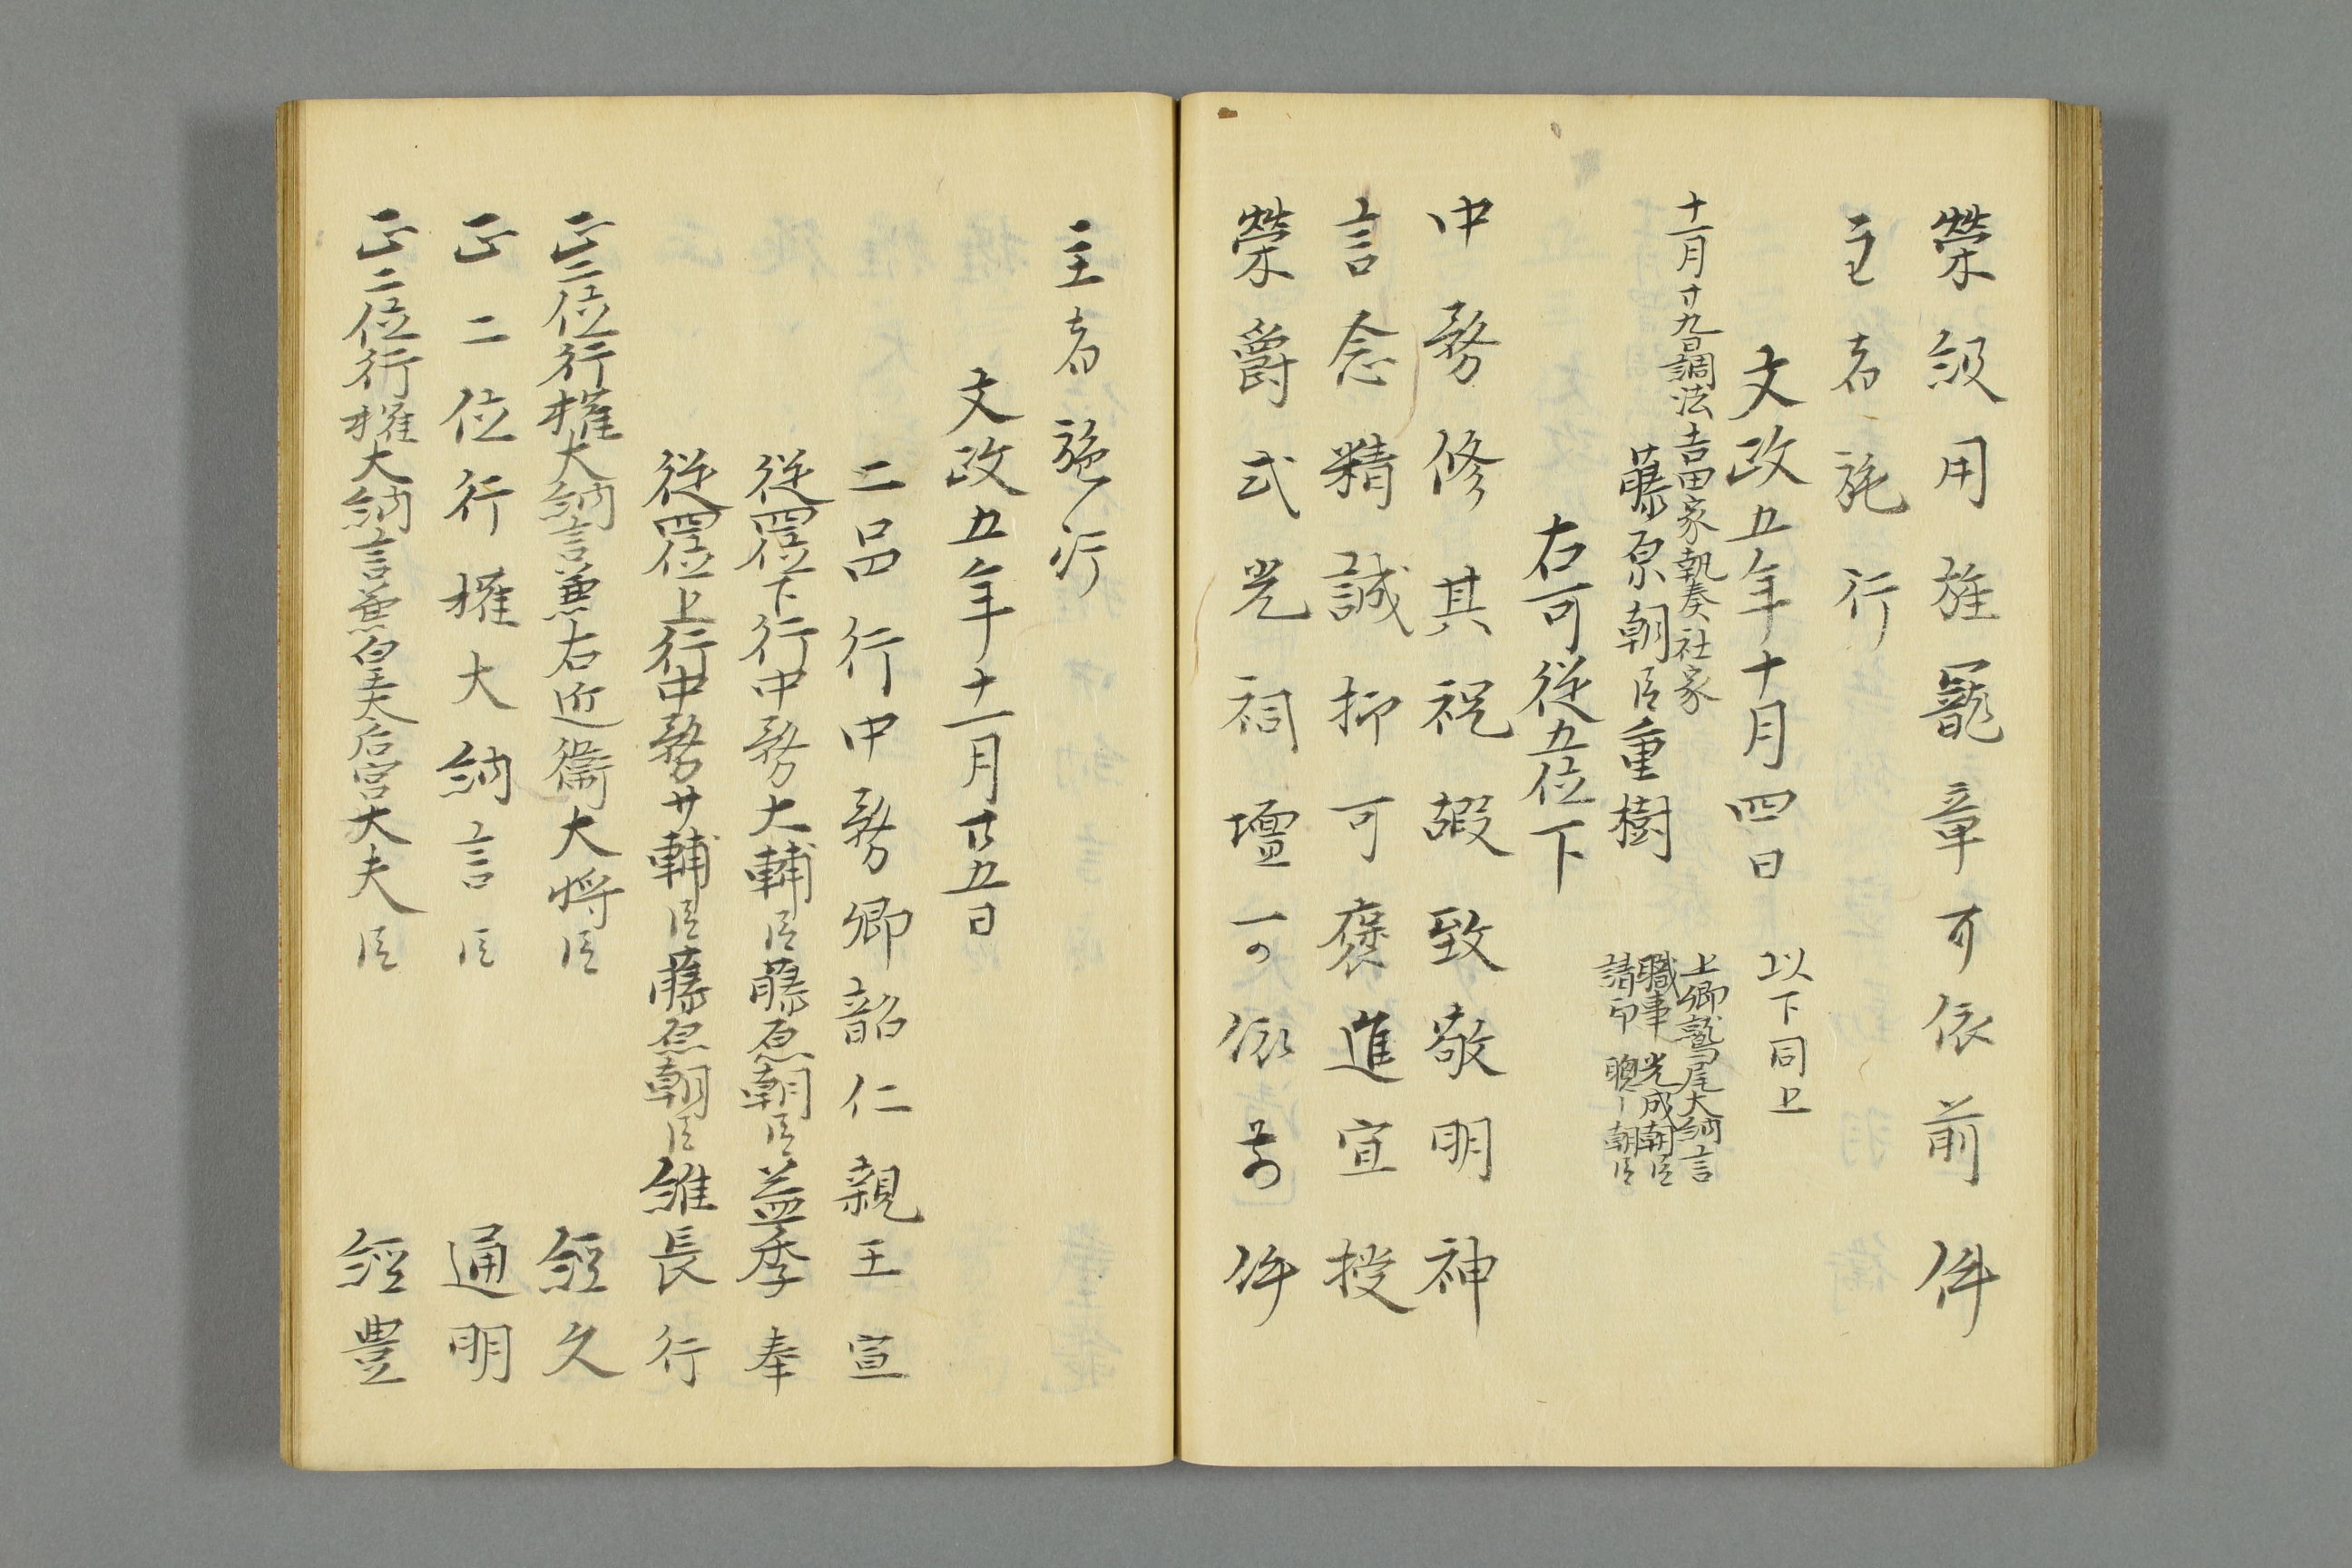 榮級用旌寵章可依前件
主者施行
文政五年十月四日
以下同上
十一月廿九日調法吉田家執奏社家
藤原朝臣重樹
上卿鷲尾大納言
職事 光成朝臣
請印 聰ー朝臣
右可従五位下
中務修其祝嘏致敬明神
言念精誠抑可褒進宜授
榮爵式光祠壇可依前件
主者施行
文政五年十一月廿五日
二品行中務卿韶仁親王宣
従四位下行中務大輔臣藤原朝臣益季奉
従四位上行中務少輔臣藤原朝臣維長行
正二位行権大納言兼右近衛大将臣 経久
正二位行權大納言臣 通明
正二位行権大納言兼皇太后宮大夫臣 経豊